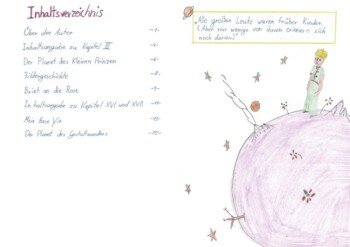 Inhaltsverzeichnis
Über den Autor -1-
Inhaltsangabe zu Kapitel II -4-
Der Planet des Kleinen Prinzen
Bildergeschichte
Brief an die Rose -9-
Inhaltsangabe zu Kapitel XVI und XVII -11-
Mein
Der Planet des -15-
„Alle großen Leute waren früher Kinder.
(Aber nur wenige von ihnen erinnern sich
noch daran)"